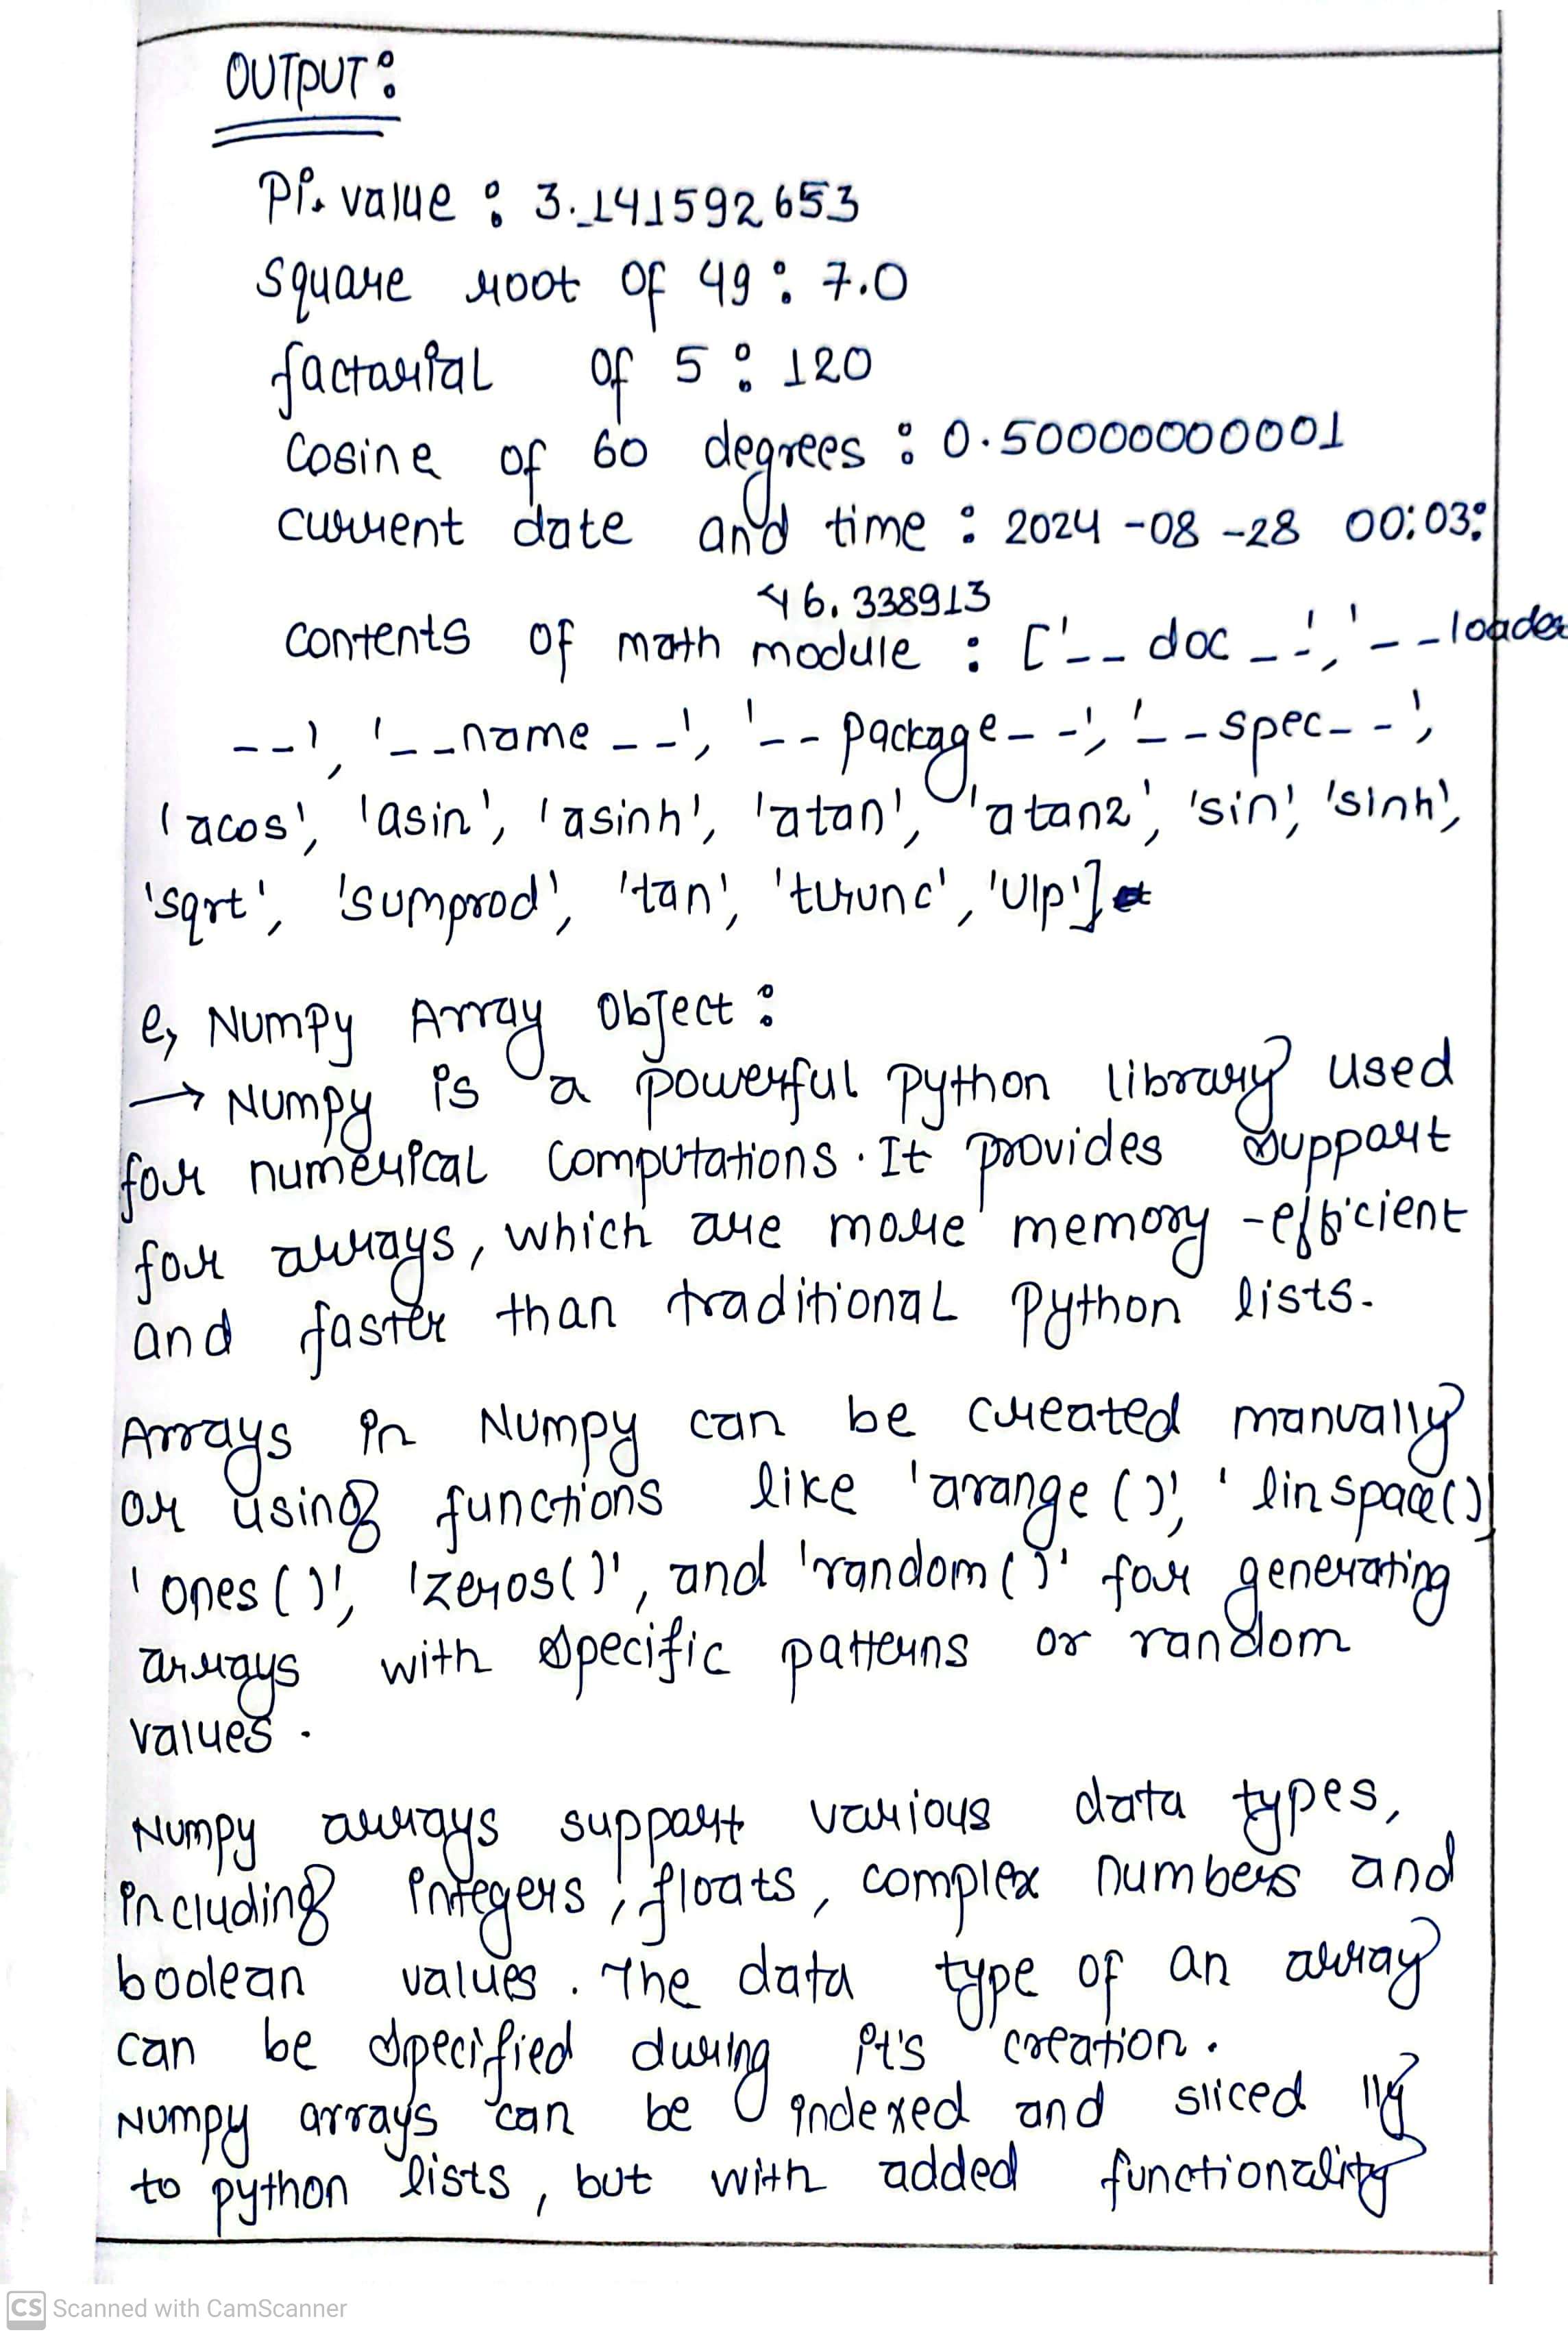 OUTPUT:
Pi. value : 3.141592653
square root of 49 : 7.0
factorial of 5 : 120
Cosine of 60 degrees : 0.50000000001
current date and time : 2024-08-28 00:03:
46.338913
contents of math module : ['__doc__', '__loader
__', '__name__', '__package__', '__spec__',
'acos', 'asin', 'asinh', 'atan', 'atan2', 'sin', 'sinh',
'sqrt', 'sumprod', 'tan', 'trunc', 'Ulp']
e, Numpy Array Object :
→ Numpy is a powerful python library used
for numerical computations. It provides support
for arrays, which are more memory-efficient
and faster than traditional Python lists.
Arrays in Numpy can be created manually
or using functions like 'arange()', 'linspace()
'ones()', 'zeros()', and 'random()' for generating
arrays with specific patterns or random
values.
Numpy arrays support various data types,
including integers, floats, complex numbers and
boolean values. The data type of an array
can be specified during it's creation.
Numpy arrays can be indexed and sliced lly
to python lists, but with added functionality
CS Scanned with CamScanner